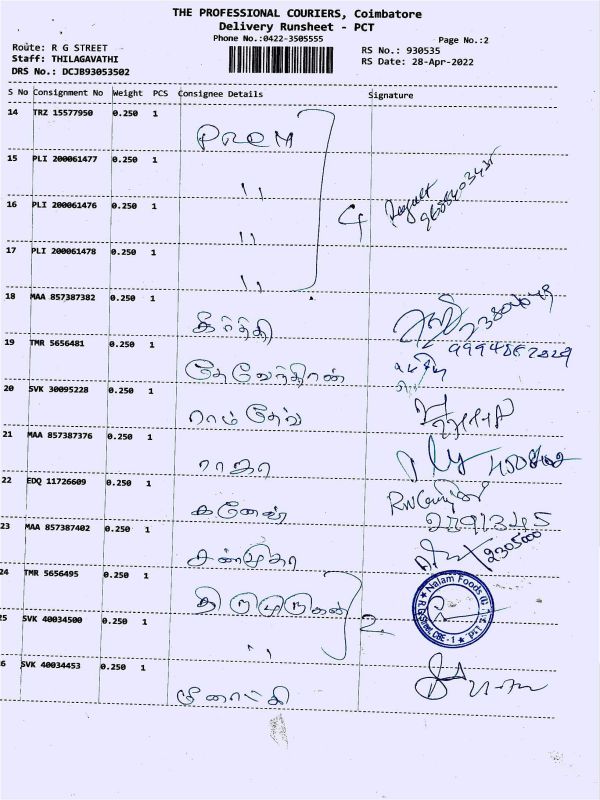 THE PROFESSIONAL COURIERS, Coimbatore
Delivery Runsheet - PCT
Phone No.:0422-3505555
Page No.:2
Route: R G STREET
RS No.: 930535
Staff: THILAGAVATHI
RS Date: 28-Apr-2022
DRS No.: DCJB93053502
S No Consignment No Weight PCS Consignee Details Signature
14 TRZ 15577950 0.250 1
PREM
15 PLI 200061477 0.250 1
"
16 PLI 200061476 0.250 1
" 4
17 PLI 200061478 0.250 1
"
18 MAA 857387382 0.250 1
கீர்த்தி
19 TMR 5656481 0.250 1
தேவேந்திரன்
20 SVK 30095228 0.250 1
ராம் தேவ்
21 MAA 857387376 0.250 1
ராஜா
22 EDQ 11726609 0.250 1
கணேஷ் 2091345
23 MAA 857387402 0.250 1
சண்முகா 2305000
24 TMR 5656495 0.250 1
திருமுருகன் 2
Nalam Foods
R.G. Street, CBE - 1
25 SVK 40034500 0.250 1
"
26 SVK 40034453 0.250 1
மீனாட்சி